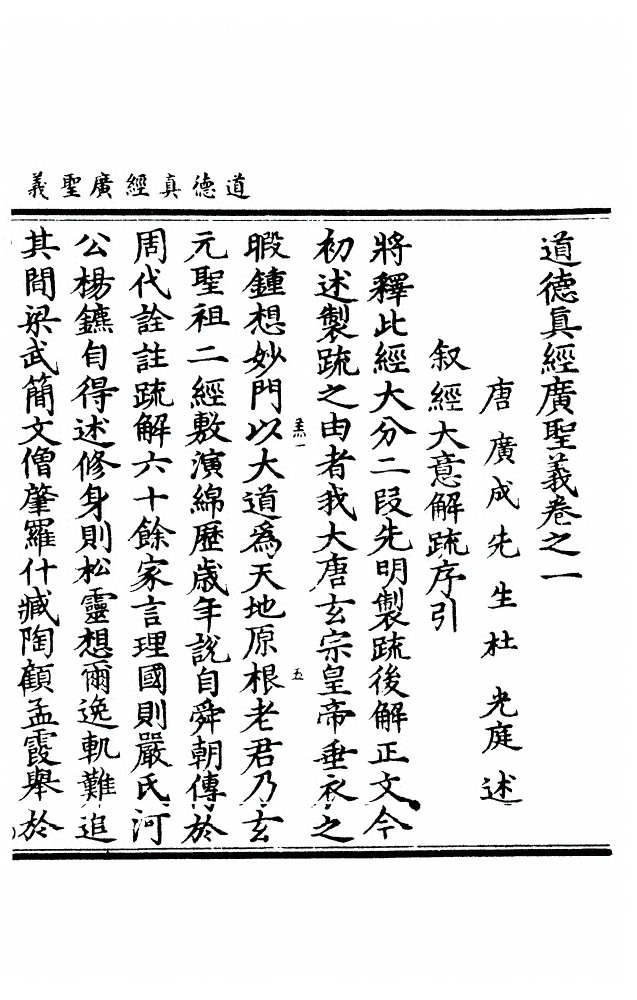 道德真經廣聖義
道德眞經廣聖義卷之一
唐廣成先生杜光庭述
叙經大意解䟽序引
將釋此經大分二段先明製䟽後解正文今
初述製䟽之由者我大唐玄宗皇帝垂衣之
暇鍾想妙門以大道爲天地原根老君乃玄
元聖祖二經敷演綿歷歲年說自舜朝傳於
周代詮註䟽解六十餘家言理國則嚴氏河
公楊鑣自得述修身則松靈想爾逸軌難追
其間梁武簡文僧肇羅什臧陶顧孟霞舉於